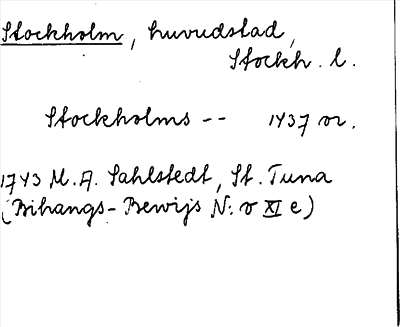 Stockholm, huvudstad,
Stockh. l.
Stockholms -- 1437 or.
1743 M. A. Sahlstedt, St. Tuna
(Bihangs-Bewijs N:o XI e)